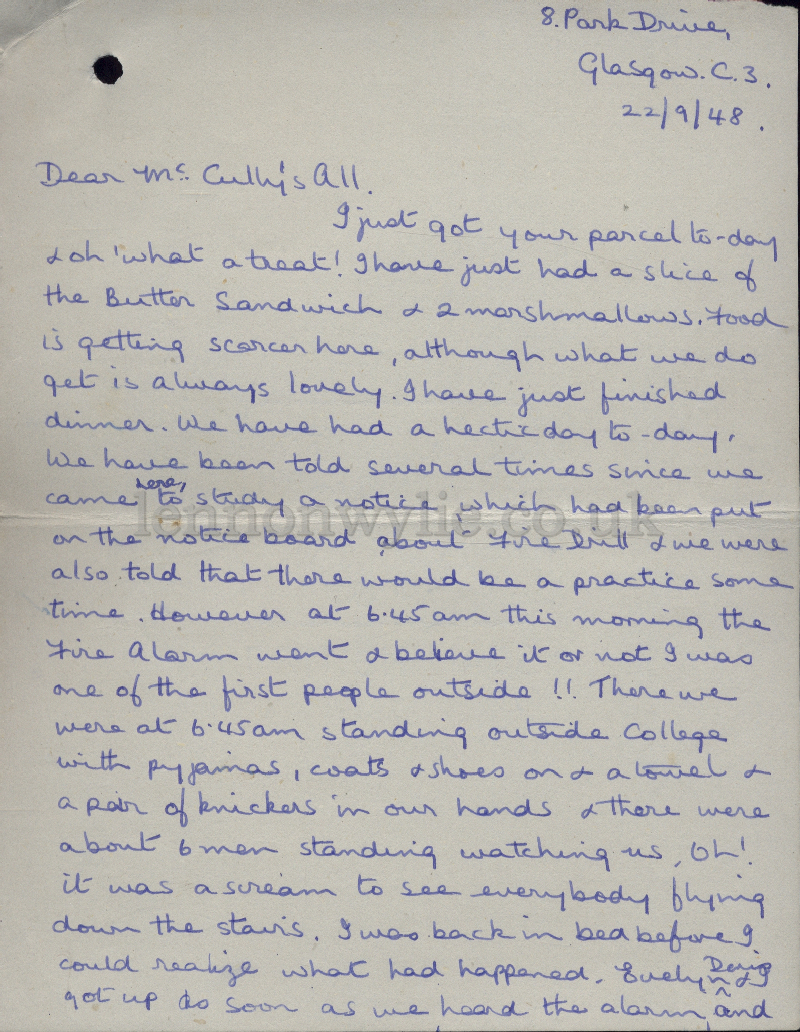 8. Park Drive,
Glasgow. C.3.
22/9/48.
Dear Mc Cully's All.
I just got your parcel to-day
& oh! what a treat! I have just had a slice of
the Butter Sandwich & 2 marshmallows. Food
is getting scarcer here, although what we do
get is always lovely. I have just finished
dinner. We have had a hectic day to-day.
We have been told several times since we
came here, to study a notice which had been put
on the notice board about Fire Drill & we were
also told that there would be a practice some
time. However at 6.45am this morning the
Fire Alarm went & believe it or not I was
one of the first people outside !! There we
were at 6.45am standing outside College
with pyjamas, coats & shoes on & a towel &
a pair of knickers in our hands & there were
about 6 men standing watching us, Oh!
it was a scream to see everybody flying
down the stairs. I was back in bed before I
could realize what had happened. Evelyn & I
got up so soon as we heard the alarm and
lennonwylie.co.uk